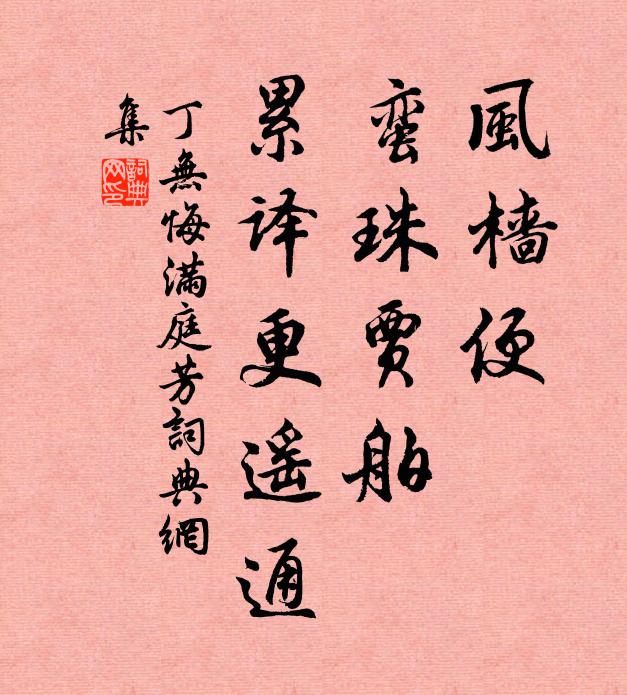 風樯便
蛮珠賈舶
累译更遥通
丁無悔滿庭芳詞典網
集
詞典網印